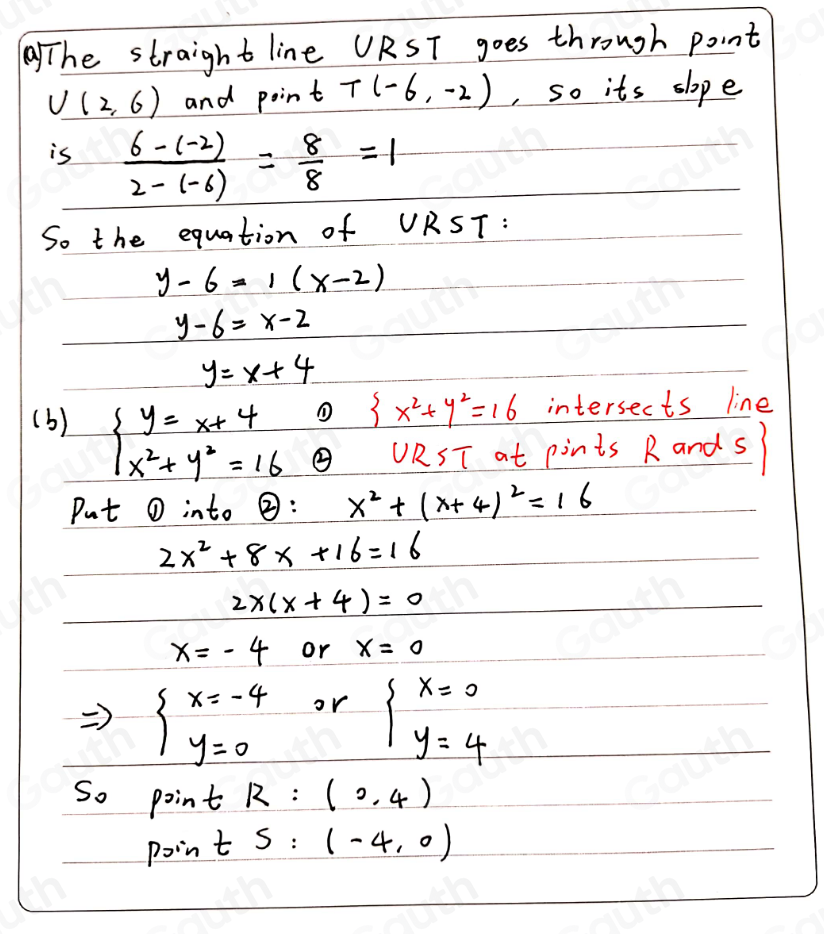 (a) The straight line URST goes through point
U(2,6) and point T(-6,-2), so its slope
is (6-(-2))/(2-(-6)) = 8/8 = 1
So the equation of URST:
y-6=1(x-2)
y-6=x-2
y=x+4
(b) { y=x+4 ① {x²+y²=16 intersects line
x²+y²=16 ② URST at pints R and S}
Put ① into ②: x²+(x+4)²=16
2x²+8x+16=16
2x(x+4)=0
x=-4 or x=0
⇒ { x=-4 or { x=0
y=0 y=4
So point R: (0,4)
point S: (-4,0)